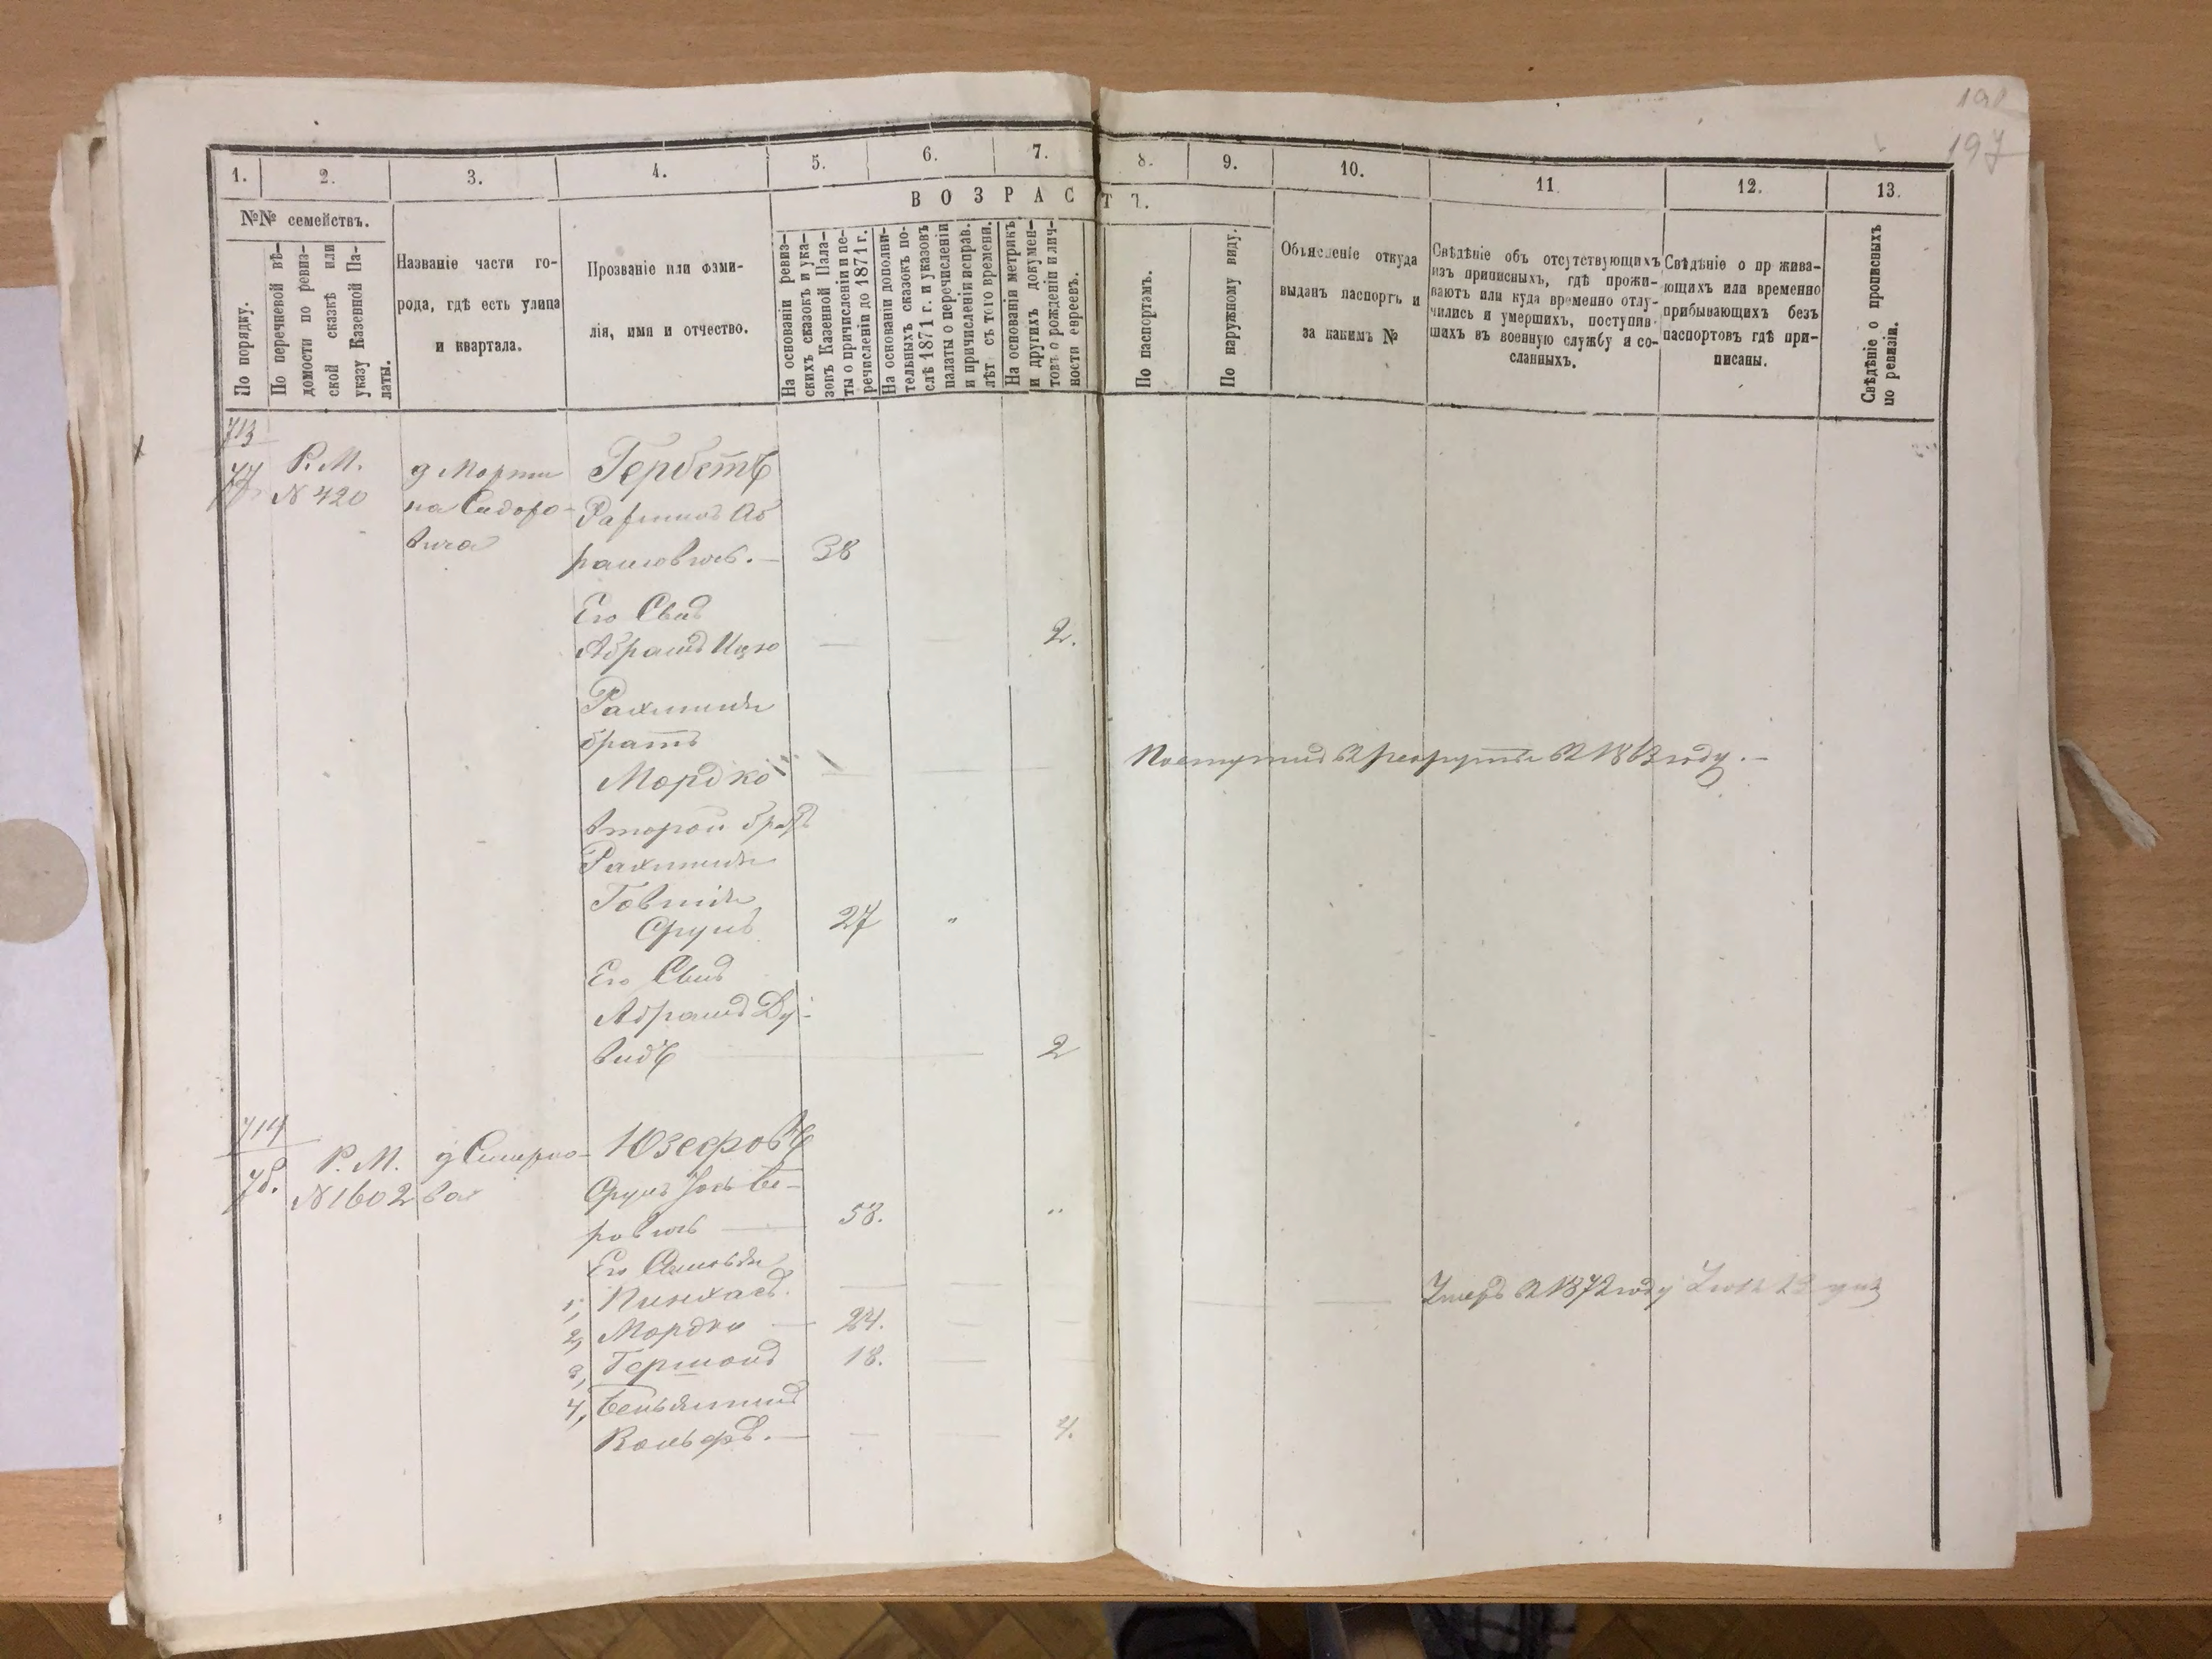 198
197
1.
2.
3.
4.
5.
6.
7.
8.
9.
10.
11.
12.
13.
ВОЗРАСТЪ.
№№ семействъ.
По порядку.
По перечневой вѣ-
домости по ревиз-
ской сказкѣ или
указу Казенной Па-
латы.
Названіе части го-
рода, гдѣ есть улица
и квартала.
Прозваніе или фами-
лія, имя и отчество.
На основаніи ревиз-
скихъ сказокъ и ука-
зовъ Казенной Пала-
ты о причисленіи и пе-
речисленіи до 1871 г.
На основаніи дополни-
тельныхъ сказокъ по-
слѣ 1871 г. и указовъ
палаты о перечисленіи
и причисленіи исправ.
лѣт съ того времени.
На основаніи метрикъ
и другихъ докумен-
товъ о рожденіи и лич-
ности евреевъ.
По паспортамъ.
По наружному виду.
Объясненіе откуда
выданъ паспортъ и
за какимъ №
Свѣдѣніе объ отсутствующихъ
изъ приписныхъ, гдѣ прожи-
ваютъ или куда временно отлу-
чились и умершихъ, поступив-
шихъ въ военную службу и со-
сланныхъ.
Свѣдѣніе о прожива-
ющихъ или временно
прибывающихъ безъ
паспортовъ гдѣ при-
писаны.
Свѣдѣніе о прописныхъ
по ревизіи.
713
77
Р. М.
N 420
д Марти
на Сидоро-
вича
Гербетъ
Рахмиль Аб
рамовичъ. — 38
Его Сынъ
Абрамъ Ицко — — 2.
Рахмиля
братъ
Мордко — — — Поступилъ въ рекруты въ 1863 году. —
второй братъ
Рахмиля
Говшія
Срулъ 27 "
Его Сынъ
Абрамъ Ду-
видъ — — 2
714
78.
Р. М.
N 1602
д Смирно-
ва
Юзефовъ
Срулъ Іось Бе-
ровичъ — 58. "
Его Сыновья
1, Пинхасъ. — — — — Умеръ въ 1872 году
2, Мордко — 24. — —
3, Гершонъ 18. — —
4, Беньяминъ
Вольфъ. — — — 4.